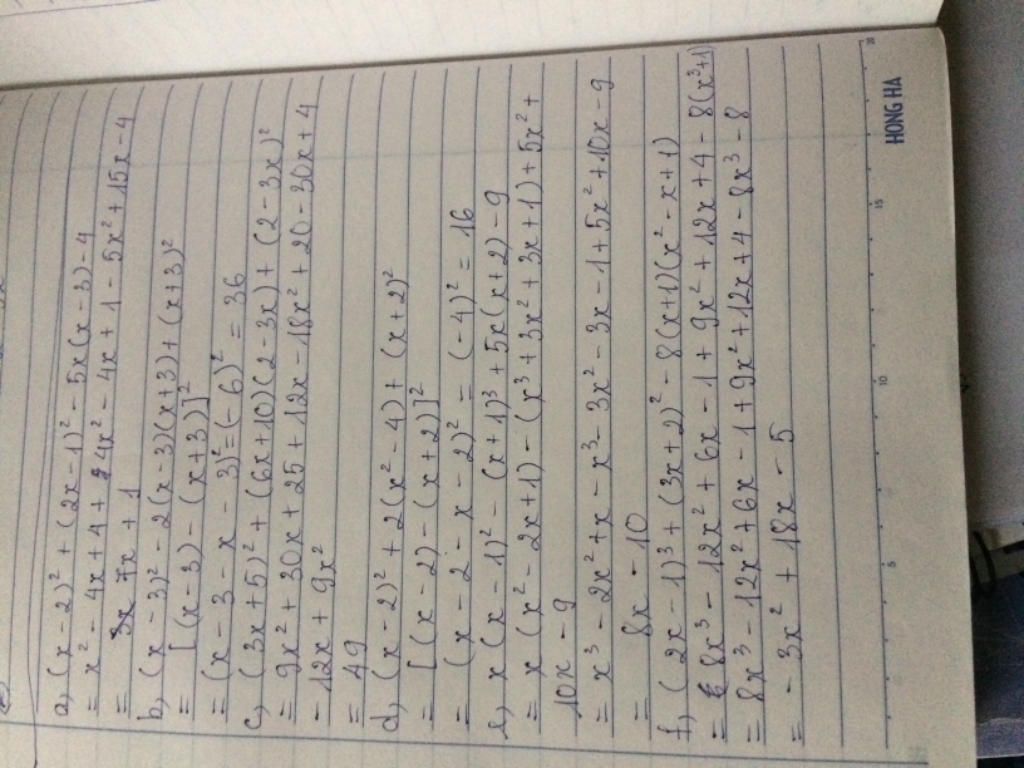 a, (x - 2)² + (2x - 1)² - 5x(x - 3) - 4
= x² - 4x + 4 + 4x² - 4x + 1 - 5x² + 15x - 4
= 7x + 1
b, (x - 3)² - 2(x - 3)(x + 3) + (x + 3)²
= [(x - 3) - (x + 3)]²
= (x - 3 - x - 3)² = (- 6)² = 36
c, (3x + 5)² + (6x + 10)(2 - 3x) + (2 - 3x)²
= 9x² + 30x + 25 + 12x - 18x² + 20 - 30x + 4
- 12x + 9x²
= 49
d, (x - 2)² + 2(x² - 4) + (x + 2)²
= [(x - 2) - (x + 2)]²
= (x - 2 - x - 2)² = (- 4)² = 16
e, x(x - 1)² - (x + 1)³ + 5x(x + 2) - 9
= x(x² - 2x + 1) - (x³ + 3x² + 3x + 1) + 5x² +
10x - 9
= x³ - 2x² + x - x³ - 3x² - 3x - 1 + 5x² + 10x - 9
= 8x - 10
f, (2x - 1)³ + (3x + 2)² - 8(x + 1)(x² - x + 1)
= 8x³ - 12x² + 6x - 1 + 9x² + 12x + 4 - 8(x³ + 1)
= 8x³ - 12x² + 6x - 1 + 9x² + 12x + 4 - 8x³ - 8
= - 3x² + 18x - 5
5 10 15 20
HONG HA